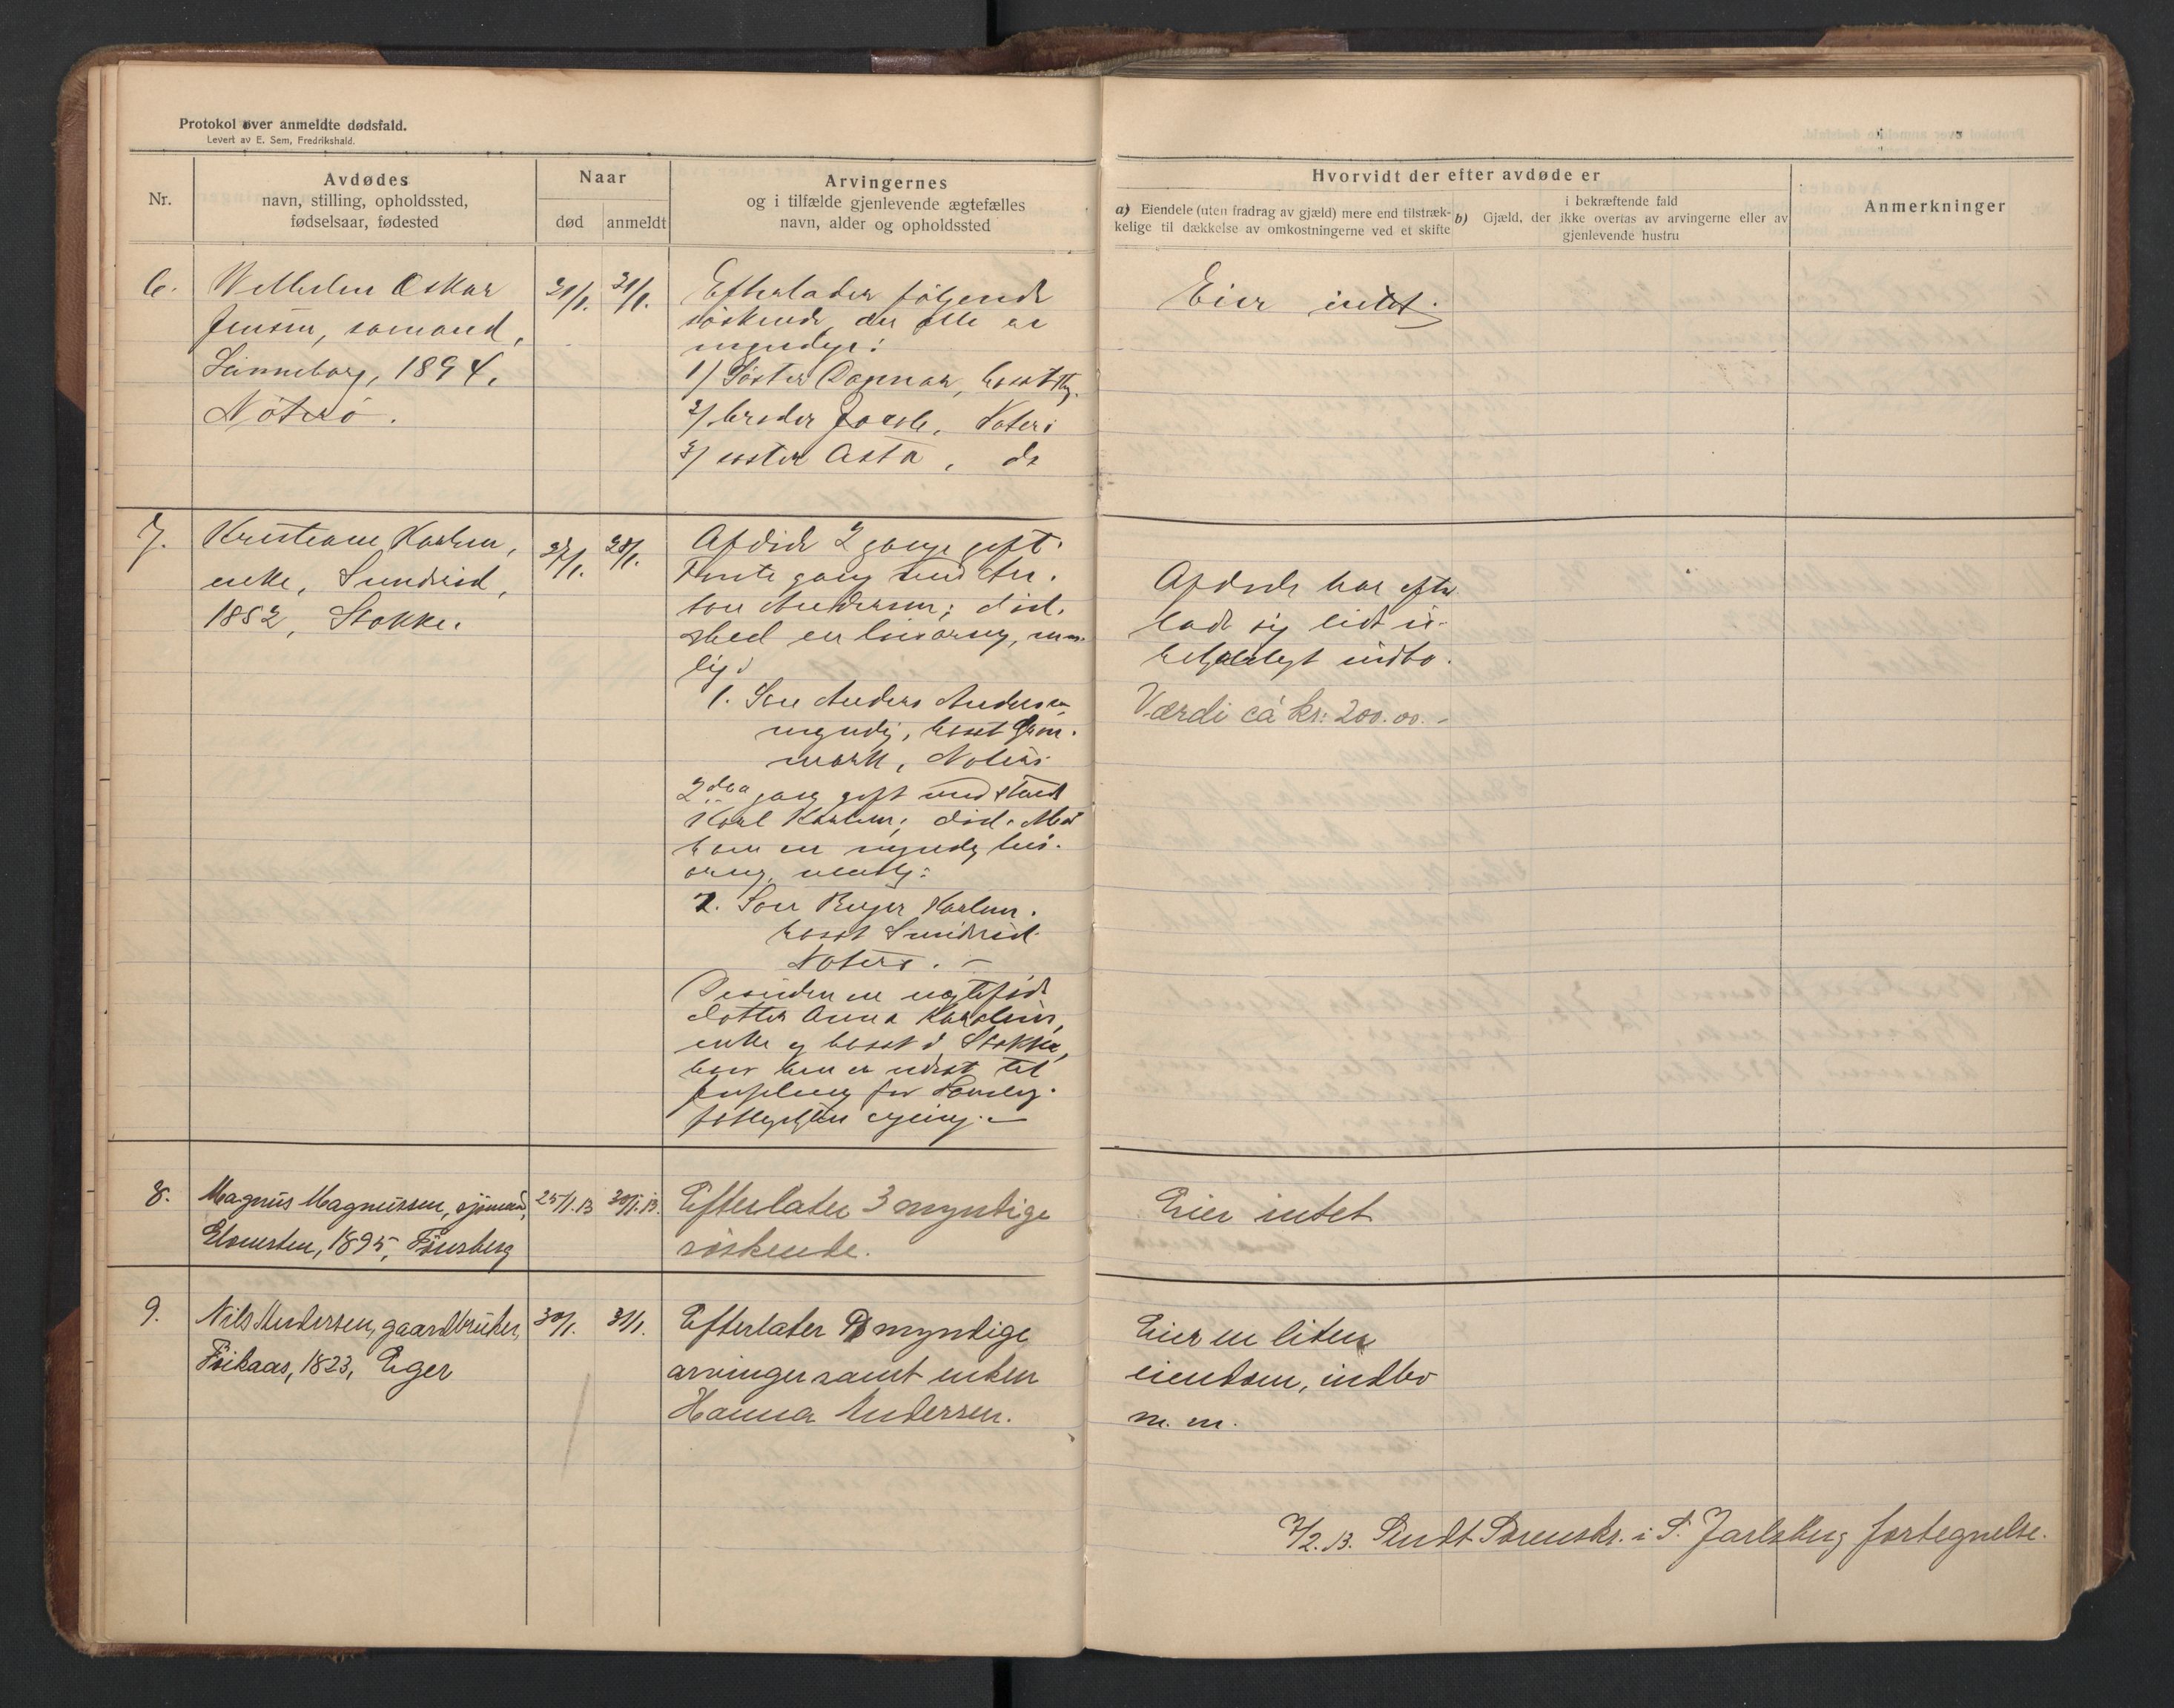 Protokol over anmeldte dødsfald.
Levert av E. Sem, Fredrikshald.
Nr.
Avdødes
navn, stilling, opholdssted,
fødselsaar, fødested
Naar
død
anmeldt
Arvingernes
og i tilfælde gjenlevende ægtefælles
navn, alder og opholdssted
Hvorvidt der efter avdøde er
a) Eiendele (uten fradrag av gjæld) mere end tilstræk-
kelige til dækkelse av omkostningerne ved et skifte
i bekræftende fald
b) Gjæld, der ikke overtas av arvingerne eller av
gjenlevende hustru
Anmerkninger
6.
Oskar
Jensen, sømand,
1894,
Nøterø.
21/1.
Efterlader følgende
søskende, der alle er
myndige:
1) Søster Dagmar,
2) broder Jacob, Nøterø
3) søster Asta, do
Eier intet.
7.
Kristiane Karlsen,
enke, Sundrød,
1852, Stokke.
27/1.
28/1.
Afdøde 2 gange gift.
Første gang med An-
ton Andersen; død.
en livsarving, nem-
lig:
1. Søn Anders Andersen,
myndig, bosat Grøn-
mark, Nøterø.
2den gang gift med
Karl Karlsen; død. Med
ham en myndig livs-
arving, nemlig:
2. Søn Karlsen.
bosat Sundrød
Nøterø. -
Desuden en uægtefødt
datter Anna
enke og bosat i Stokke,
Afdøde har efter-
ladt sig lidt u-
betydeligt indbo.
Værdi ca kr: 200.00. -
8.
Magnus Magnussen, sjømand,
1895, Tønsberg
25/1.13
30/1.13.
Efterlater 3 myndige
søskende.
Eier intet
9.
Nils Andersen, gaardbruker,
1823, Eger
30/1.
31/1.
Efterlater myndige
arvinger samt enken
Hanna Andersen.
Eier en liten
eiendom, indbo
m. m.
/2.13. Sendt Sorenskr. i S. Jarlsberg fortegnelse.